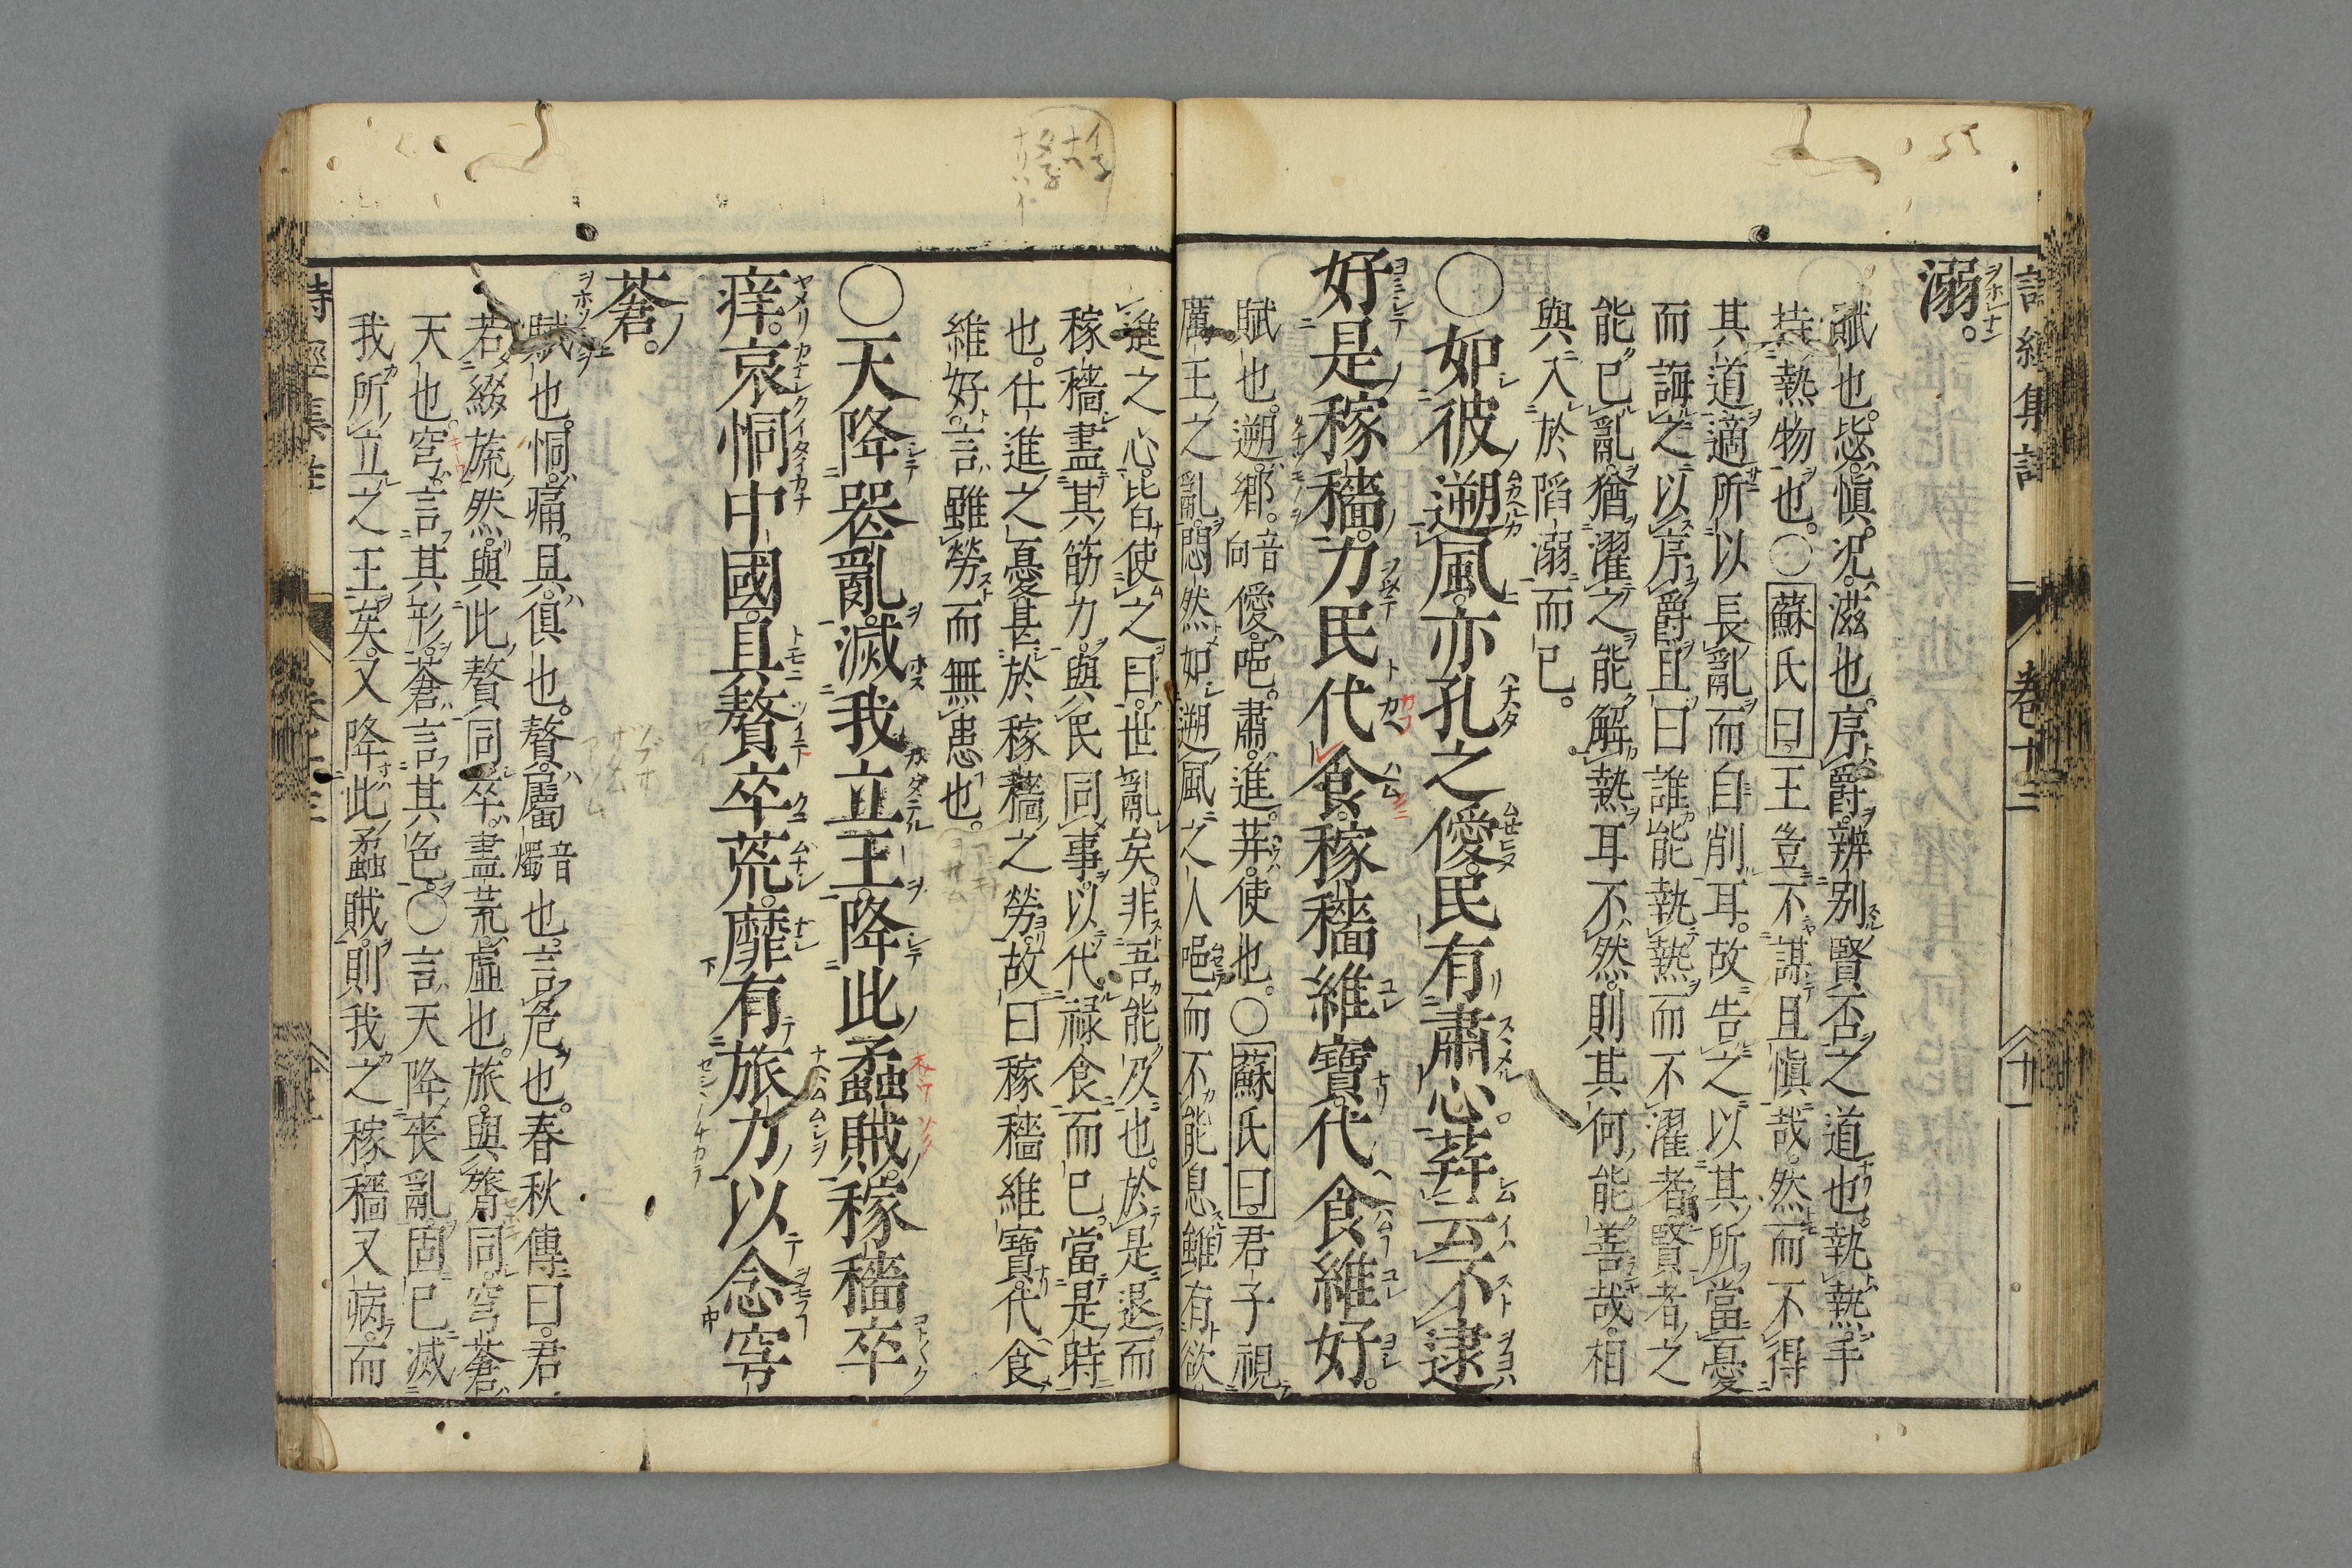 溺。
賦也。毖。愼。況。滋也。序。爵。辨別賢否之道也。執熱。手
持熱物也。〇蘇氏曰。王豈不謀且愼哉。然而不得
其道。適所以長亂而自削耳。故告之以其所當憂
而誨之以序爵。且曰誰能執熱而不濯者。賢者之
能已亂。猶濯之能解熱耳。不然。則其何能善哉。相
與入於陷溺而已。
〇如彼遡風。亦孔之僾。民有肅心。荓云不逮。
好是稼穡。力民代食。稼穡維寶。代食維好。
賦也。遡。鄉。音向僾。唈。肅。進。荓。使也。〇蘇氏曰。君子視
厲王之亂。悶然如遡風之人唈而不能息。雖有欲
進之心。皆使之曰。世亂矣。非吾能及也。於是退而
稼穡。盡其筋力。與民同事。以代祿食而已。當是時
也。仕進之憂甚於稼穡之勞。故曰稼穡維寶。代食
維好。言雖勞而無患也。
〇天降喪亂。滅我立王。降此蟊賊。稼穡卒
痒。哀恫中國。具贅卒荒。靡有旅力。以念穹
蒼。
賦也。恫。痛。具。俱也。贅。屬音燭也。言危也。春秋傳曰。君
若綴旒然。與此贅同。卒。盡。荒。虛也。旅。與膂同。穹蒼。
天也。穹。言其形。蒼。言其色。〇言天降喪亂。固已滅
我所立之王矣。又降此蟊賊。則我之稼穡又病。而
詩經集註
卷十三
十一